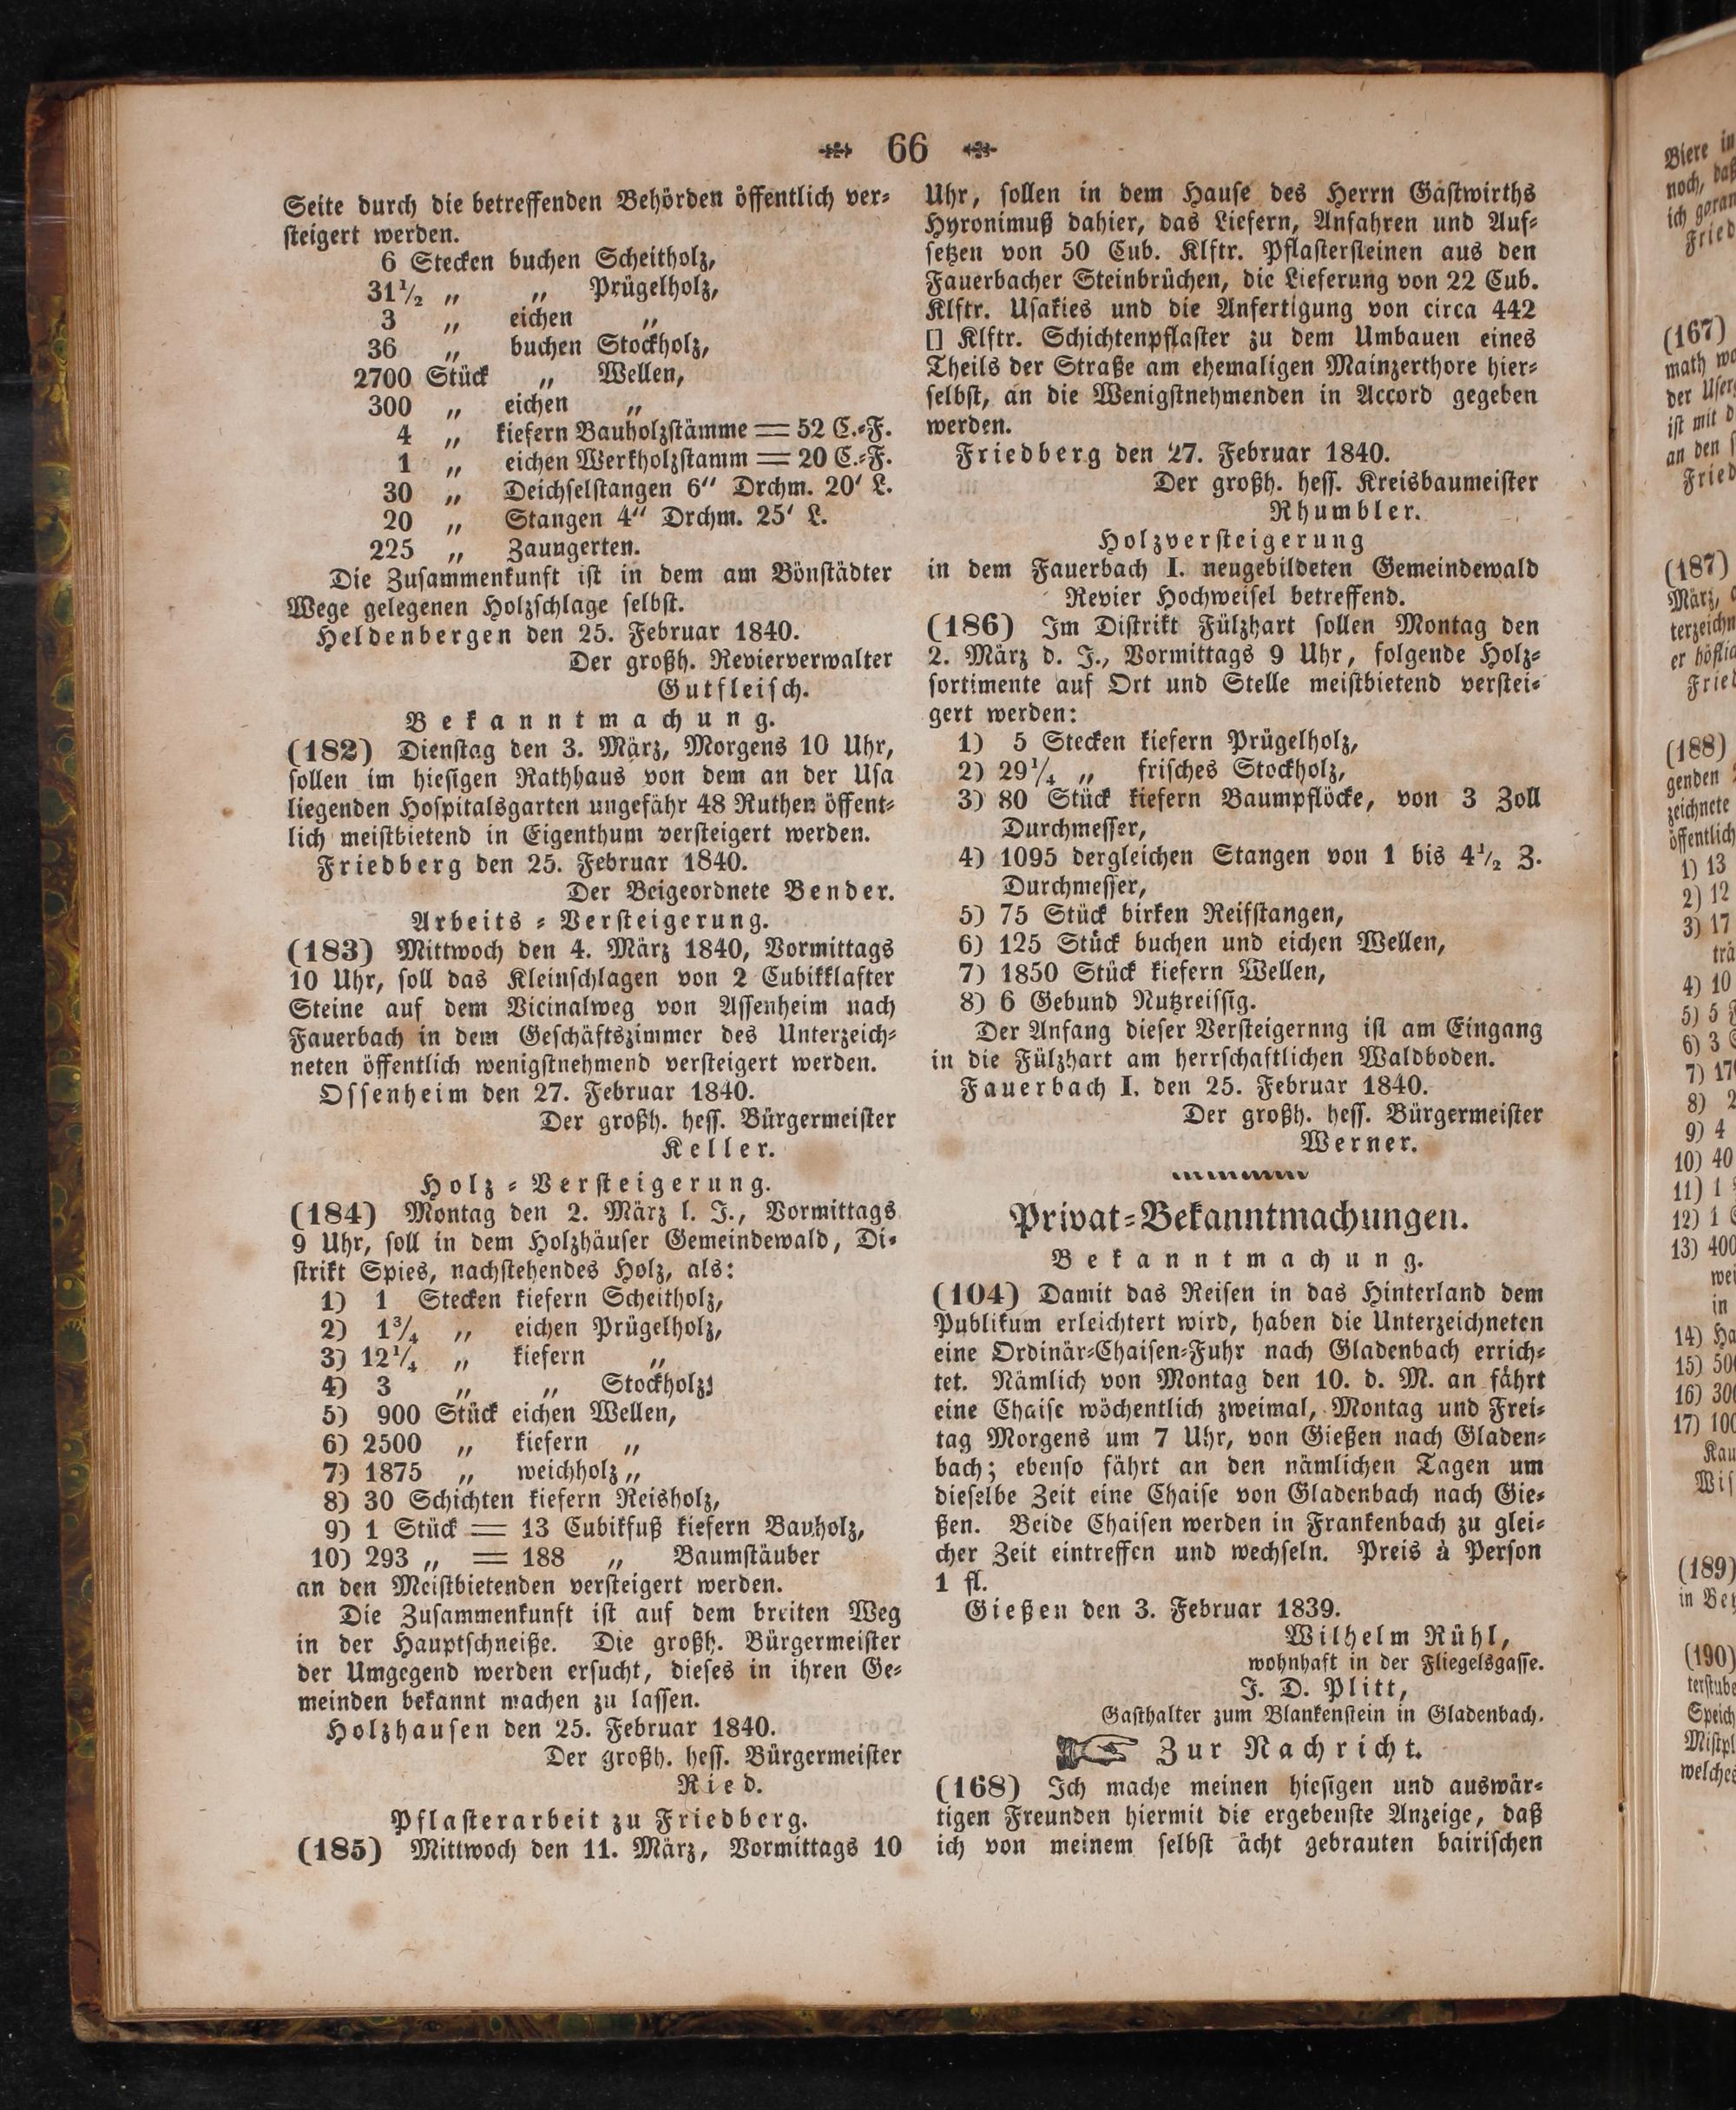 66
Seite durch die betreffenden Behörden öffentlich ver-
steigert werden.
6 Stecken buchen Scheitholz,
31½ „ „ Prügelholz,
3 „ eichen „
36 „ buchen Stockholz,
2700 Stück „ Wellen,
300 „ eichen „
4 „ kiefern Bauholzstämme = 52 C.-F.
1 „ eichen Werkholzstamm = 20 C.-F.
30 „ Deichselstangen 6" Drchm. 20' L.
20 „ Stangen 4" Drchm. 25' L.
225 „ Zaungerten.
Die Zusammenkunft ist in dem am Bönstädter
Wege gelegenen Holzschlage selbst.
Heldenbergen den 25. Februar 1840.
Der großh. Revierverwalter
Gutfleisch.
Bekanntmachung.
(182) Dienstag den 3. März, Morgens 10 Uhr,
sollen im hiesigen Rathhaus von dem an der Usa
liegenden Hospitalsgarten ungefähr 48 Ruthen öffent-
lich meistbietend in Eigenthum versteigert werden.
Friedberg den 25. Februar 1840.
Der Beigeordnete Bender.
Arbeits-Versteigerung.
(183) Mittwoch den 4. März 1840, Vormittags
10 Uhr, soll das Kleinschlagen von 2 Cubikklafter
Steine auf dem Vicinalweg von Assenheim nach
Fauerbach in dem Geschäftszimmer des Unterzeich-
neten öffentlich wenigstnehmend versteigert werden.
Ossenheim den 27. Februar 1840.
Der großh. hess. Bürgermeister
Keller.
Holz-Versteigerung.
(184) Montag den 2. März l. J., Vormittags
9 Uhr, soll in dem Holzhäuser Gemeindewald, Di-
strikt Spies, nachstehendes Holz, als:
1) 1 Stecken kiefern Scheitholz,
2) 1¾ „ eichen Prügelholz,
3) 12¼ „ kiefern „
4) 3 „ „ Stockholz;
5) 900 Stück eichen Wellen,
6) 2500 „ kiefern „
7) 1875 „ weichholz „
8) 30 Schichten kiefern Reisholz,
9) 1 Stück = 13 Cubikfuß kiefern Bauholz,
10) 293 „ = 188 „ Baumstäuber
an den Meistbietenden versteigert werden.
Die Zusammenkunft ist auf dem breiten Weg
in der Hauptschneiße. Die großh. Bürgermeister
der Umgegend werden ersucht, dieses in ihren Ge-
meinden bekannt machen zu lassen.
Holzhausen den 25. Februar 1840.
Der großh. hess. Bürgermeister
Ried.
Pflasterarbeit zu Friedberg.
(185) Mittwoch den 11. März, Vormittags 10
Uhr, sollen in dem Hause des Herrn Gastwirths
Hyronimuß dahier, das Liefern, Anfahren und Auf-
setzen von 50 Cub. Klftr. Pflastersteinen aus den
Fauerbacher Steinbrüchen, die Lieferung von 22 Cub.
Klftr. Usakies und die Anfertigung von circa 442
[] Klftr. Schichtenpflaster zu dem Umbauen eines
Theils der Straße am ehemaligen Mainzerthore hier-
selbst, an die Wenigstnehmenden in Accord gegeben
werden.
Friedberg den 27. Februar 1840.
Der großh. hess. Kreisbaumeister
Rhumbler.
Holzversteigerung
in dem Fauerbach I. neugebildeten Gemeindewald
Revier Hochweisel betreffend.
(186) Im Distrikt Fülzhart sollen Montag den
2. März d. J., Vormittags 9 Uhr, folgende Holz-
sortimente auf Ort und Stelle meistbietend verstei-
gert werden:
1) 5 Stecken kiefern Prügelholz,
2) 29¼ „ frisches Stockholz,
3) 80 Stück kiefern Baumpflöcke, von 3 Zoll
Durchmesser,
4) 1095 dergleichen Stangen von 1 bis 4½ Z.
Durchmesser,
5) 75 Stück birken Reifstangen,
6) 125 Stück buchen und eichen Wellen,
7) 1850 Stück kiefern Wellen,
8) 6 Gebund Nutzreissig.
Der Anfang dieser Versteigernng ist am Eingang
in die Fülzhart am herrschaftlichen Waldboden.
Fauerbach I. den 25. Februar 1840.
Der großh. hess. Bürgermeister
Werner.
Privat-Bekanntmachungen.
Bekanntmachung.
(104) Damit das Reisen in das Hinterland dem
Publikum erleichtert wird, haben die Unterzeichneten
eine Ordinär-Chaisen-Fuhr nach Gladenbach errich-
tet. Nämlich von Montag den 10. d. M. an fährt
eine Chaise wöchentlich zweimal, Montag und Frei-
tag Morgens um 7 Uhr, von Gießen nach Gladen-
bach; ebenso fährt an den nämlichen Tagen um
dieselbe Zeit eine Chaise von Gladenbach nach Gie-
ßen. Beide Chaisen werden in Frankenbach zu glei-
cher Zeit eintreffen und wechseln. Preis à Person
1 fl.
Gießen den 3. Februar 1839.
Wilhelm Rühl,
wohnhaft in der Fliegelsgasse.
J. D. Plitt,
Gasthalter zum Blankenstein in Gladenbach.
Zur Nachricht.
(168) Ich mache meinen hiesigen und auswär-
tigen Freunden hiermit die ergebenste Anzeige, daß
ich von meinem selbst ächt gebrauten bairischen
Biere
noch,
ich
(167)
math
der
ist mit
an den
(187)
März,
(188)
genden
zeichnete
1) 13
2) 12
3) 17
4) 10
5) 5
6) 3
8) 2
9) 4
10) 40
11) 1
12) 1
13) 400
in
14)
15)
16)
17)
(189)
(190)
welches